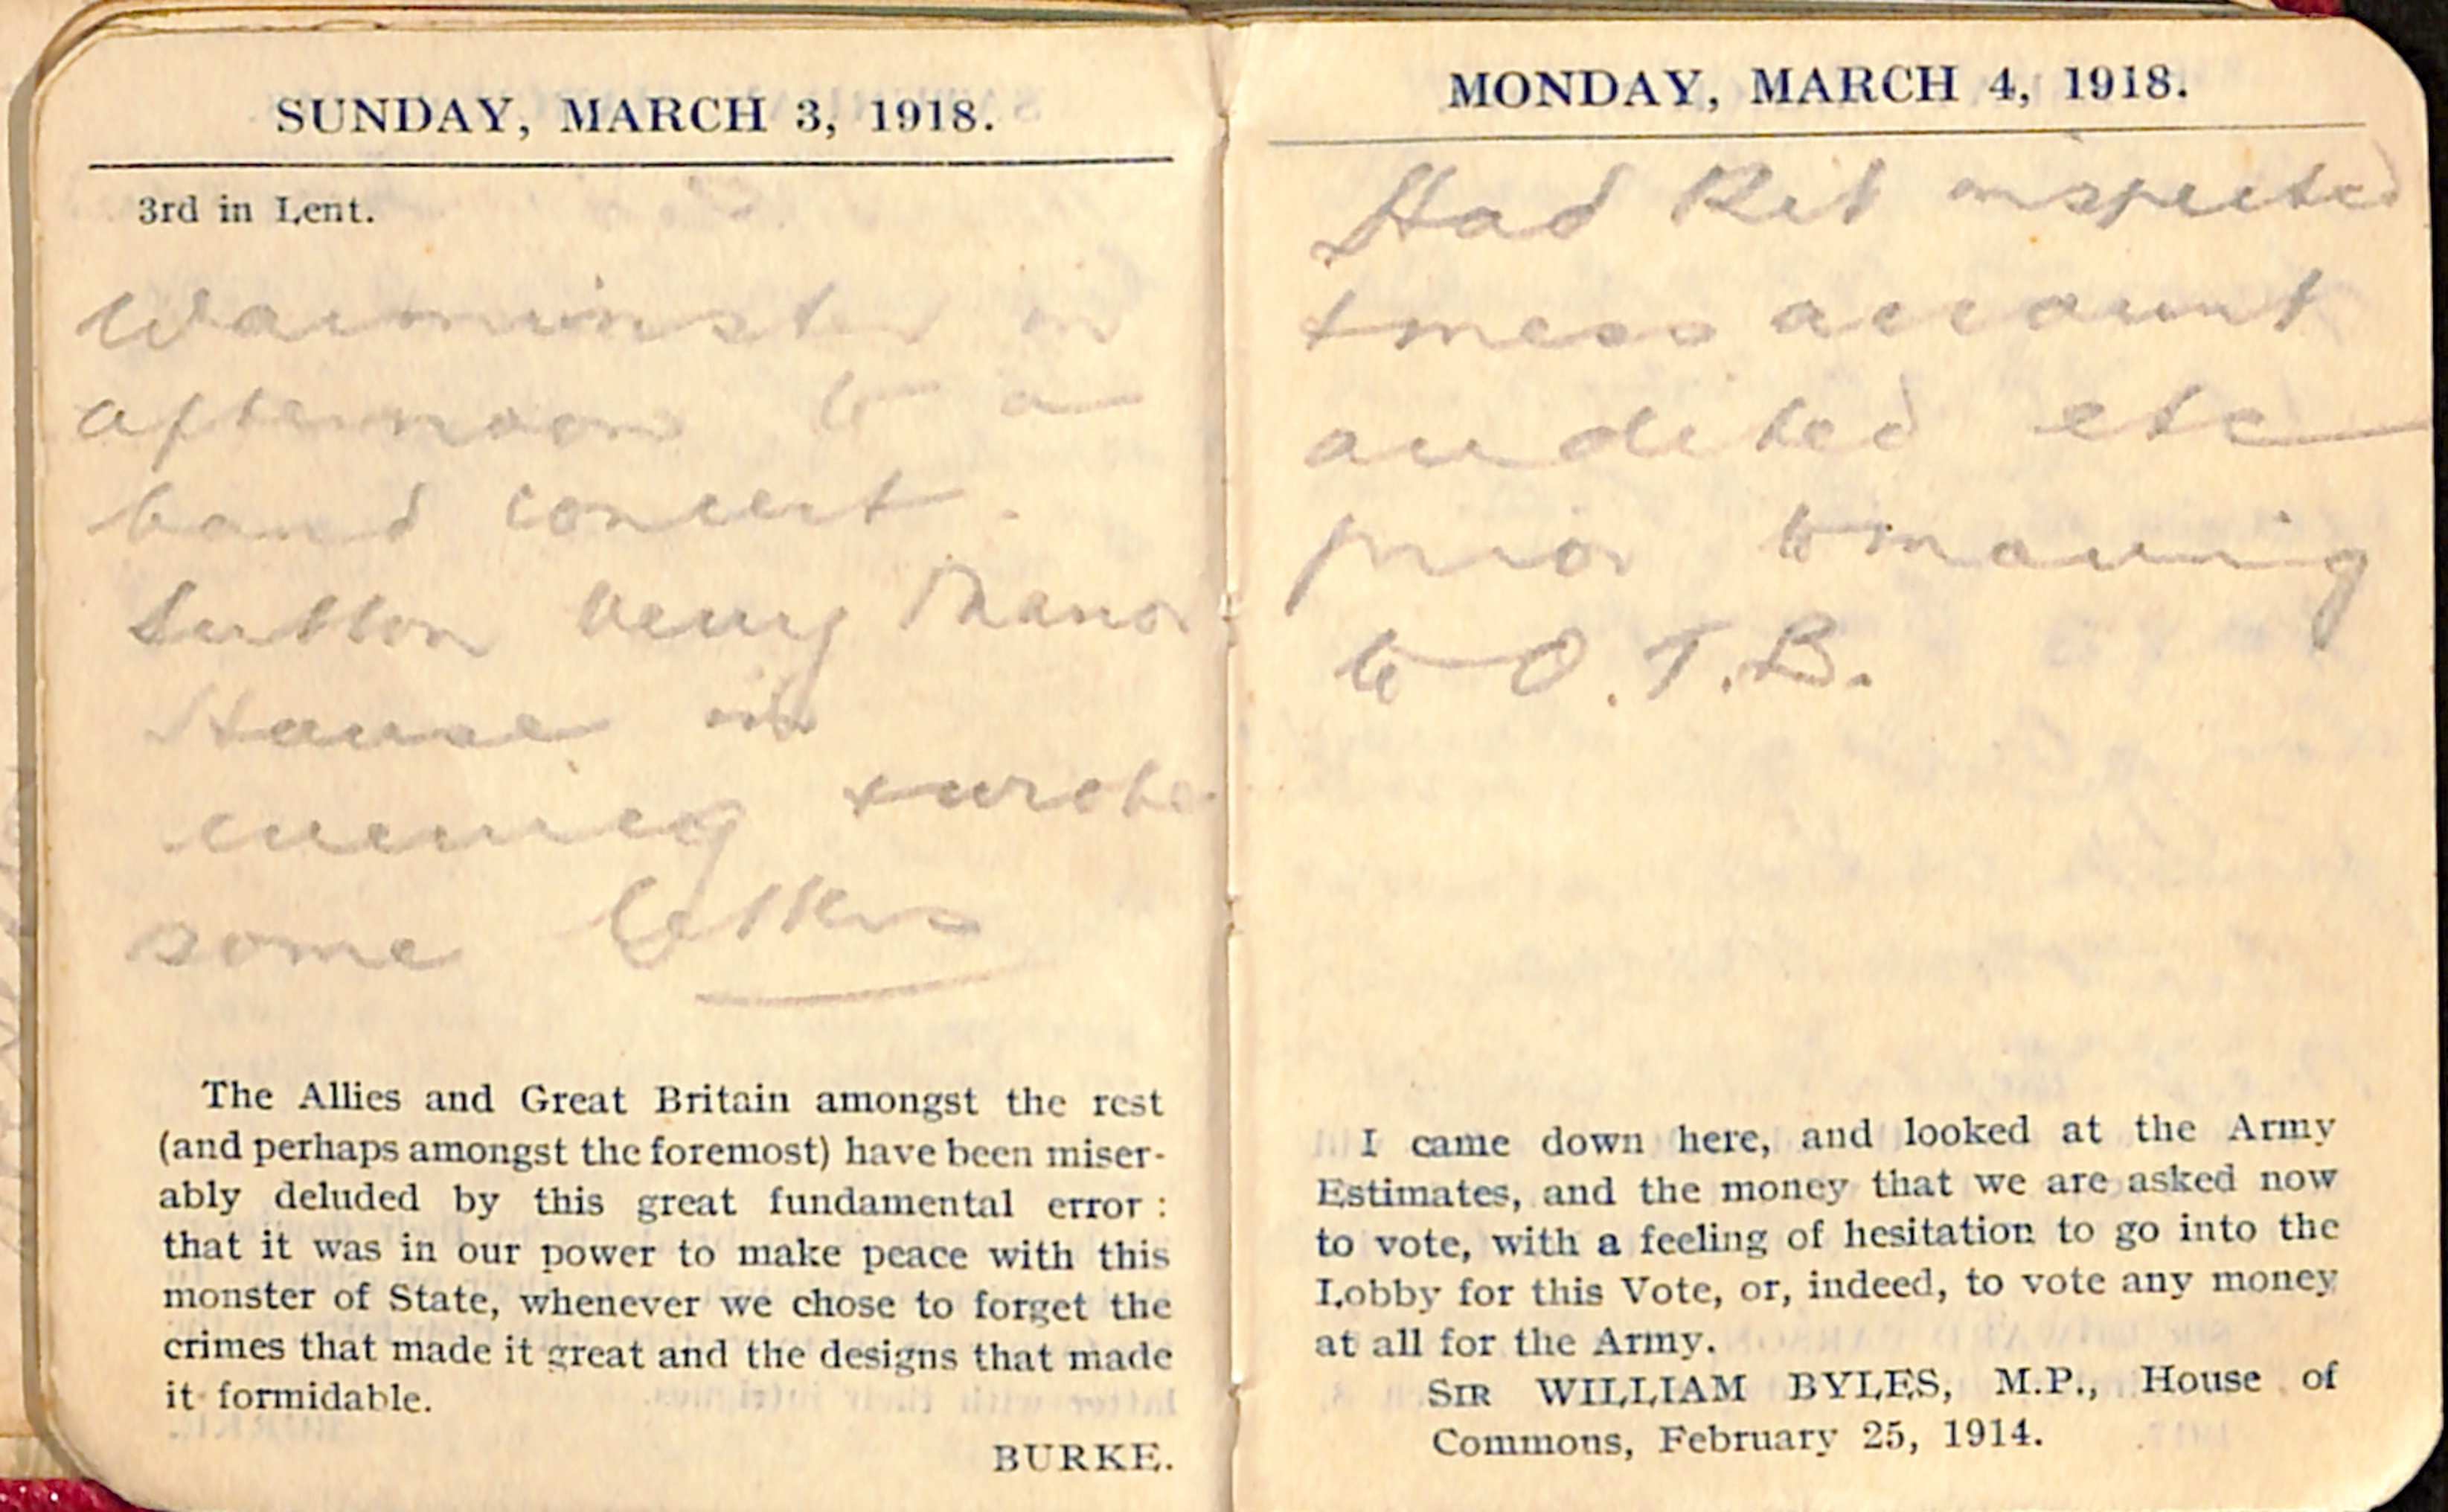 SUNDAY, MARCH 3, 1918.
3rd in Lent.
Warminster in
afternoon to a
band concert.
Sutton Veny Manor
House in
evening & wrote
some letters
The Allies and Great Britain amongst the rest
(and perhaps amongst the foremost) have been miser-
ably deluded by this great fundamental error :
that it was in our power to make peace with this
monster of State, whenever we chose to forget the
crimes that made it great and the designs that made
it formidable.
BURKE.
MONDAY, MARCH 4, 1918.
Had Kit inspected
& mess account
audited etc
prior to moving
to O.T.B.
I came down here, and looked at the Army
Estimates, and the money that we are asked now
to vote, with a feeling of hesitation to go into the
Lobby for this Vote, or, indeed, to vote any money
at all for the Army.
SIR WILLIAM BYLES, M.P., House of
Commons, February 25, 1914.